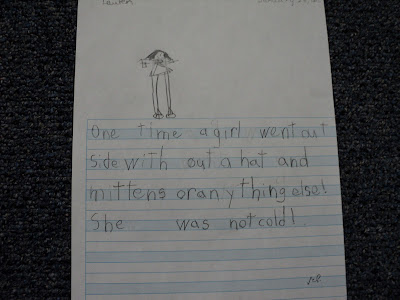 One time a girl went out
side with out a hat and
mittens or any thing else!
She was not cold!